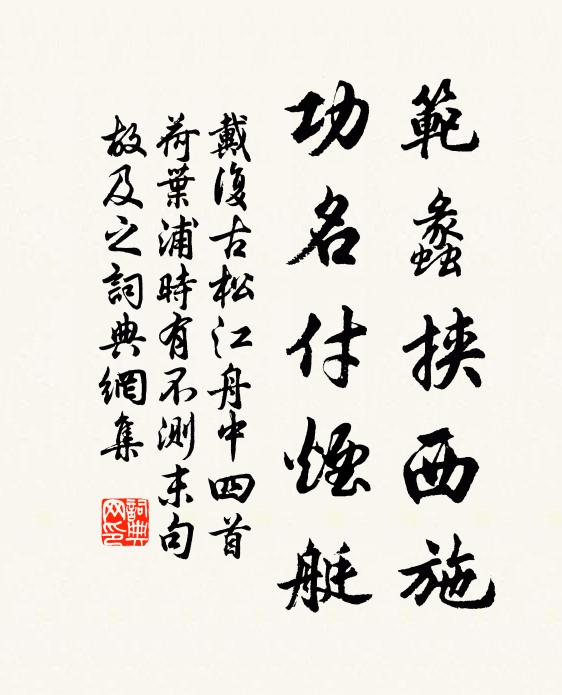 範蠡挾西施
功名付煙艇
戴復古松江舟中四首
荷葉浦時有不測末句
故及之詞典網集
詞典
网印